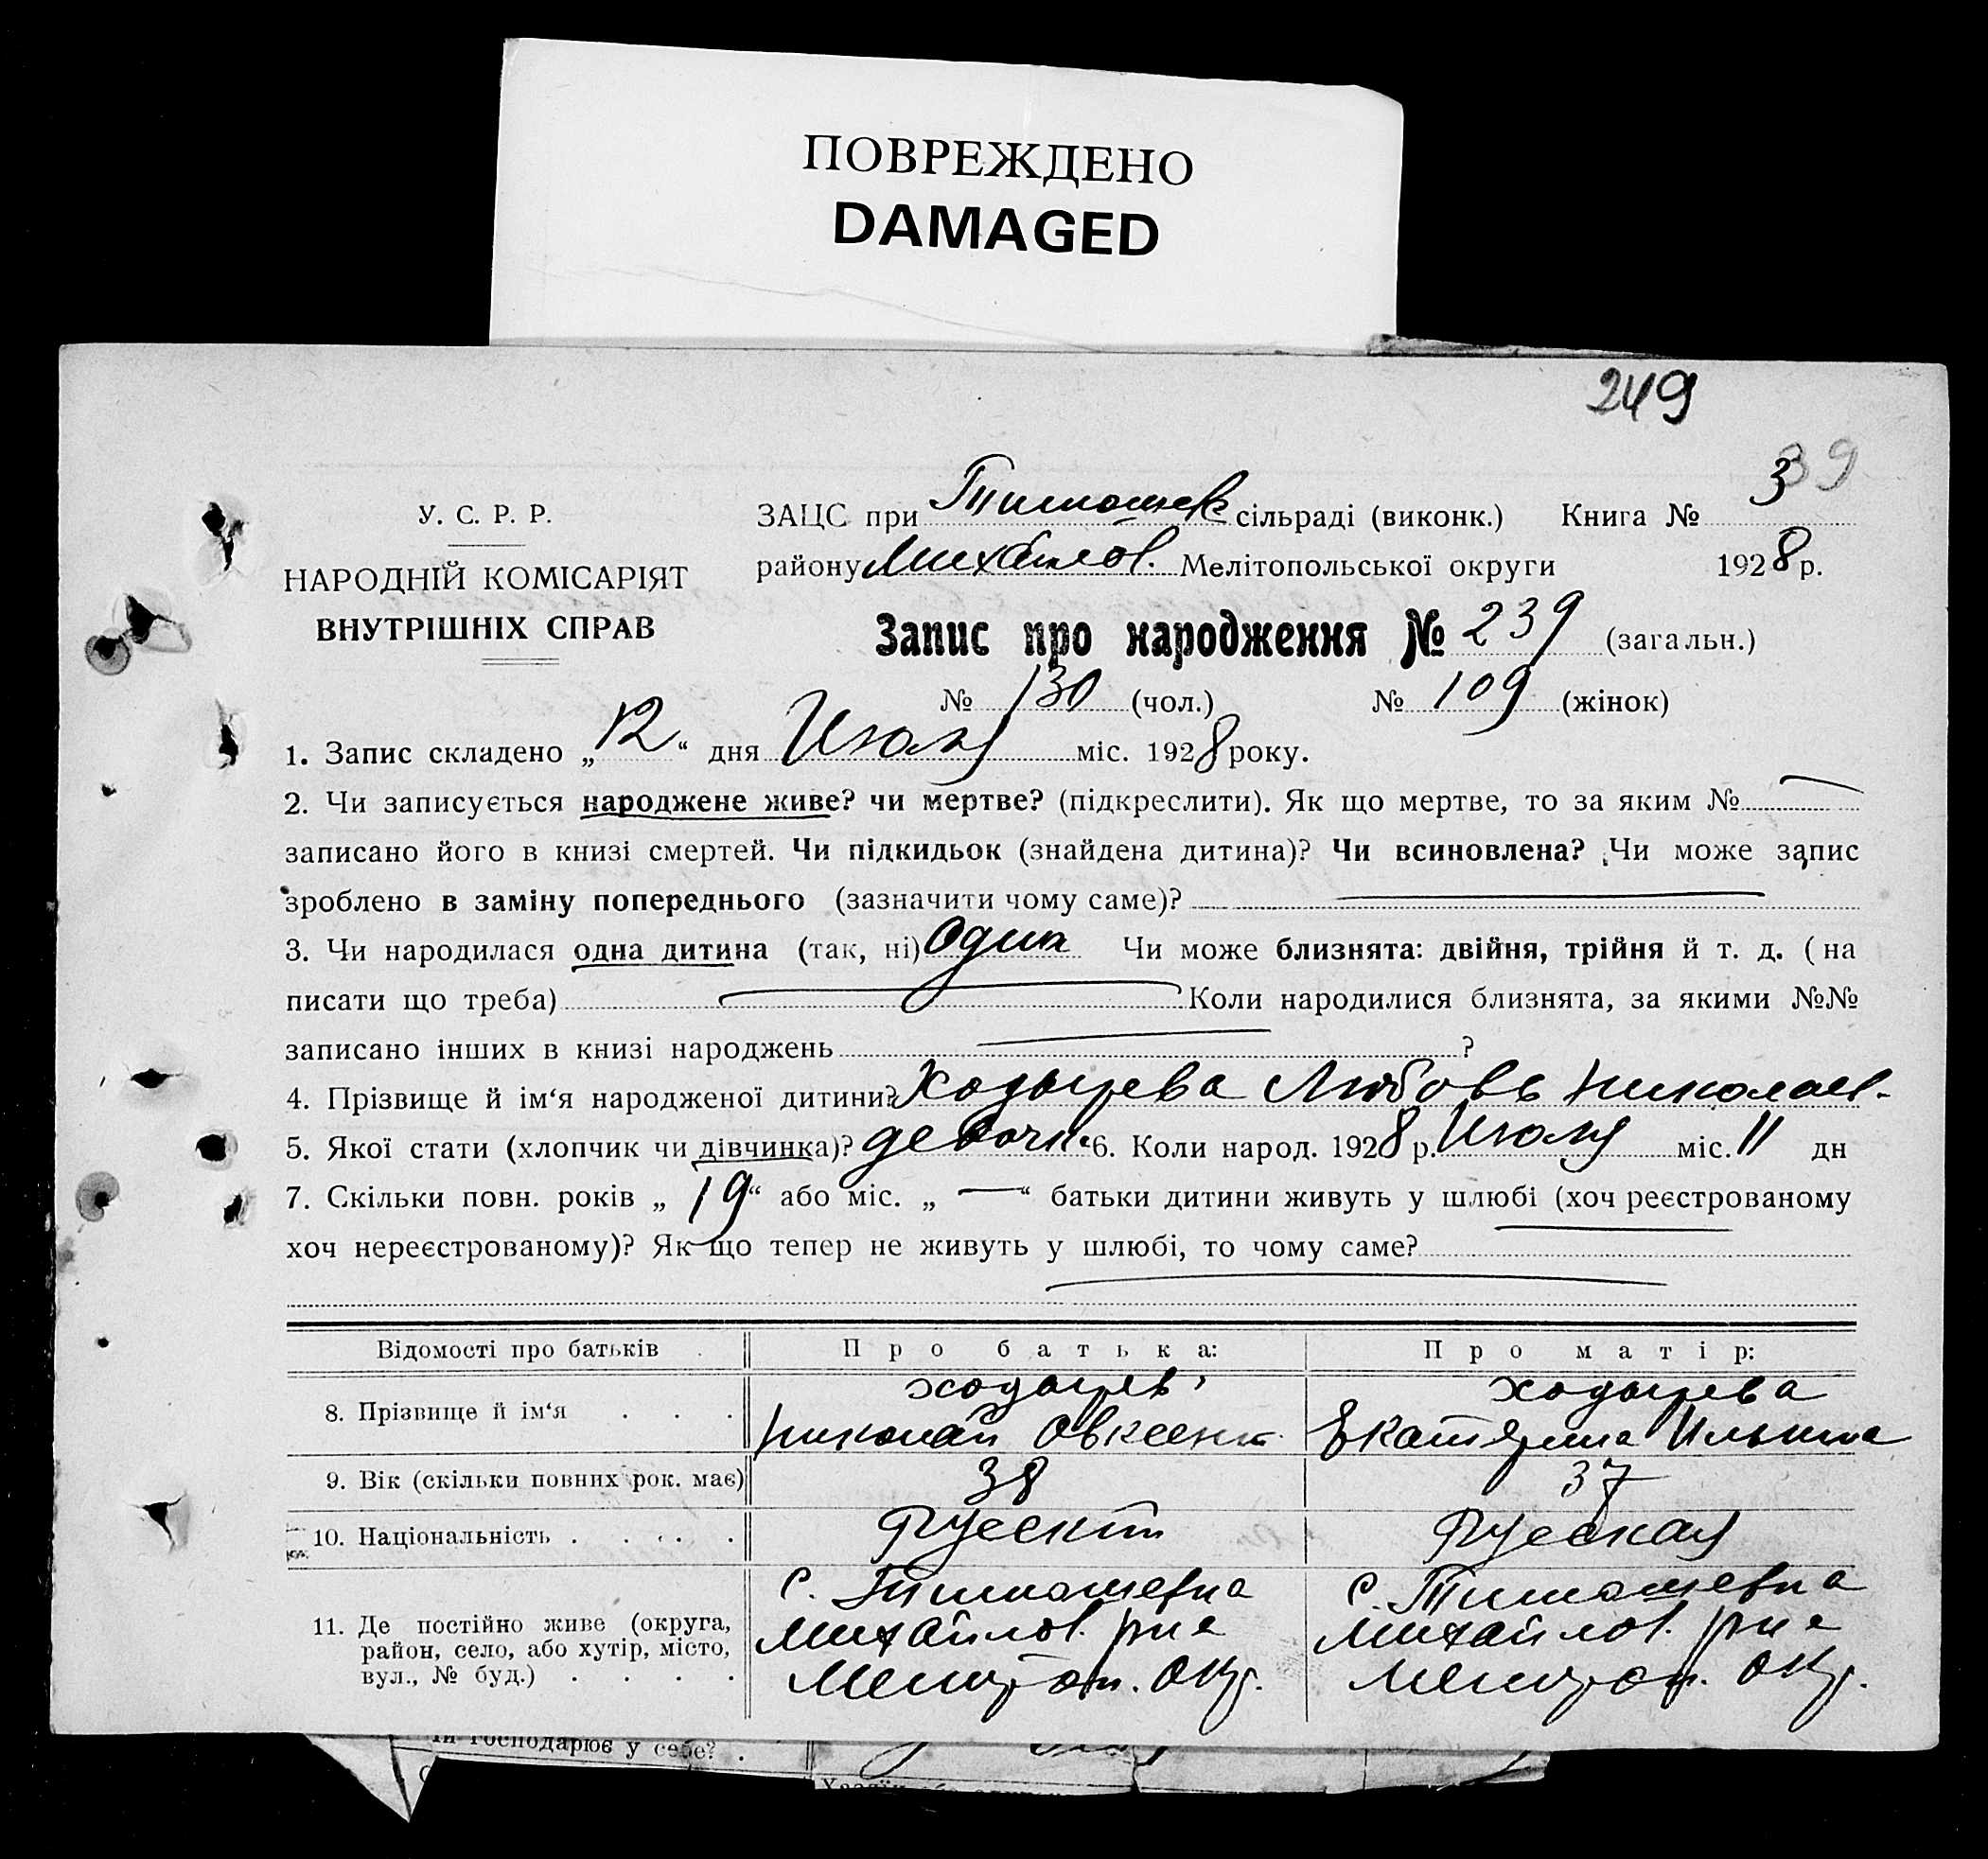 ПОВРЕЖДЕНО
DAMAGED
249
39
У. С. Р. Р.
НАРОДНІЙ КОМІСАРІЯТ
ВНУТРІШНІХ СПРАВ
ЗАЦС при Тимошев сільраді (виконк.) Книга № 3
району Михайлов. Мелітопольської округи 1928 р.
Запис про народження № 239 (загальн.)
№ 130 (чол.) № 109 (жінок)
1. Запис складено „12“ дня Июля міс. 1928 року.
2. Чи записується народжене живе? чи мертве? (підкреслити). Як що мертве, то за яким № —
записано його в книзі смертей. Чи підкидьок (знайдена дитина)? Чи всиновлена? Чи може запис
зроблено в заміну попереднього (зазначити чому саме)?
3. Чи народилася одна дитина (так, ні) Одна Чи може близнята: двійня, трійня й т. д. (на
писати що треба) Коли народилися близнята, за якими №№
записано інших в книзі народжень ?
4. Прізвище й ім‘я народженої дитини? Ходырева Любовь Николаев.
5. Якої стати (хлопчик чи дівчинка)? девочк. 6. Коли народ. 1928 р. Июля міс. 11 дн
7. Скільки повн. років „19“ або міс. „—“ батьки дитини живуть у шлюбі (хоч реєстрованому
хоч нереєстрованому)? Як що тепер не живуть у шлюбі, то чому саме?
Відомості про батьків . Про батька: Про матір:
8. Прізвище й ім‘я . . . Ходырев Николай Овксент. Ходырева Екатерина Ильина
9. Вік (скільки повних рок. має) 38 37
10. Національність . . . . . Русский Русская
11. Де постійно живе (округа, район, село, або хутір, місто, вул., № буд.) . . . .
с. Тимошевка с. Тимошевка
Михайлов. р-на Михайлов. р-на
Мелитоп. окр. Мелитоп. окр.
господарює у себе? .